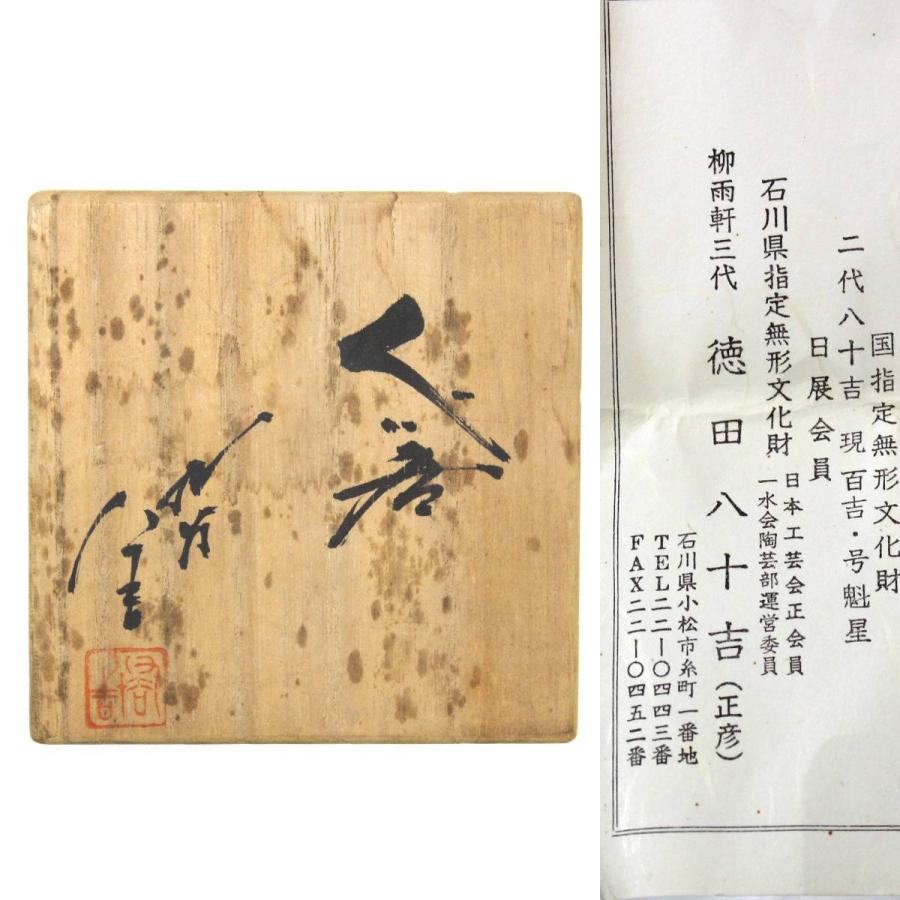 国指定無形文化財
二代八十吉 現百吉・号魁星
日展会員
石川県指定無形文化財
日本工芸会正会員
一水会陶芸部運営委員
柳雨軒三代 徳田八十吉(正彦)
石川県小松市糸町一番地
TEL二二ー〇四四三番
FAX二二ー〇四五二番